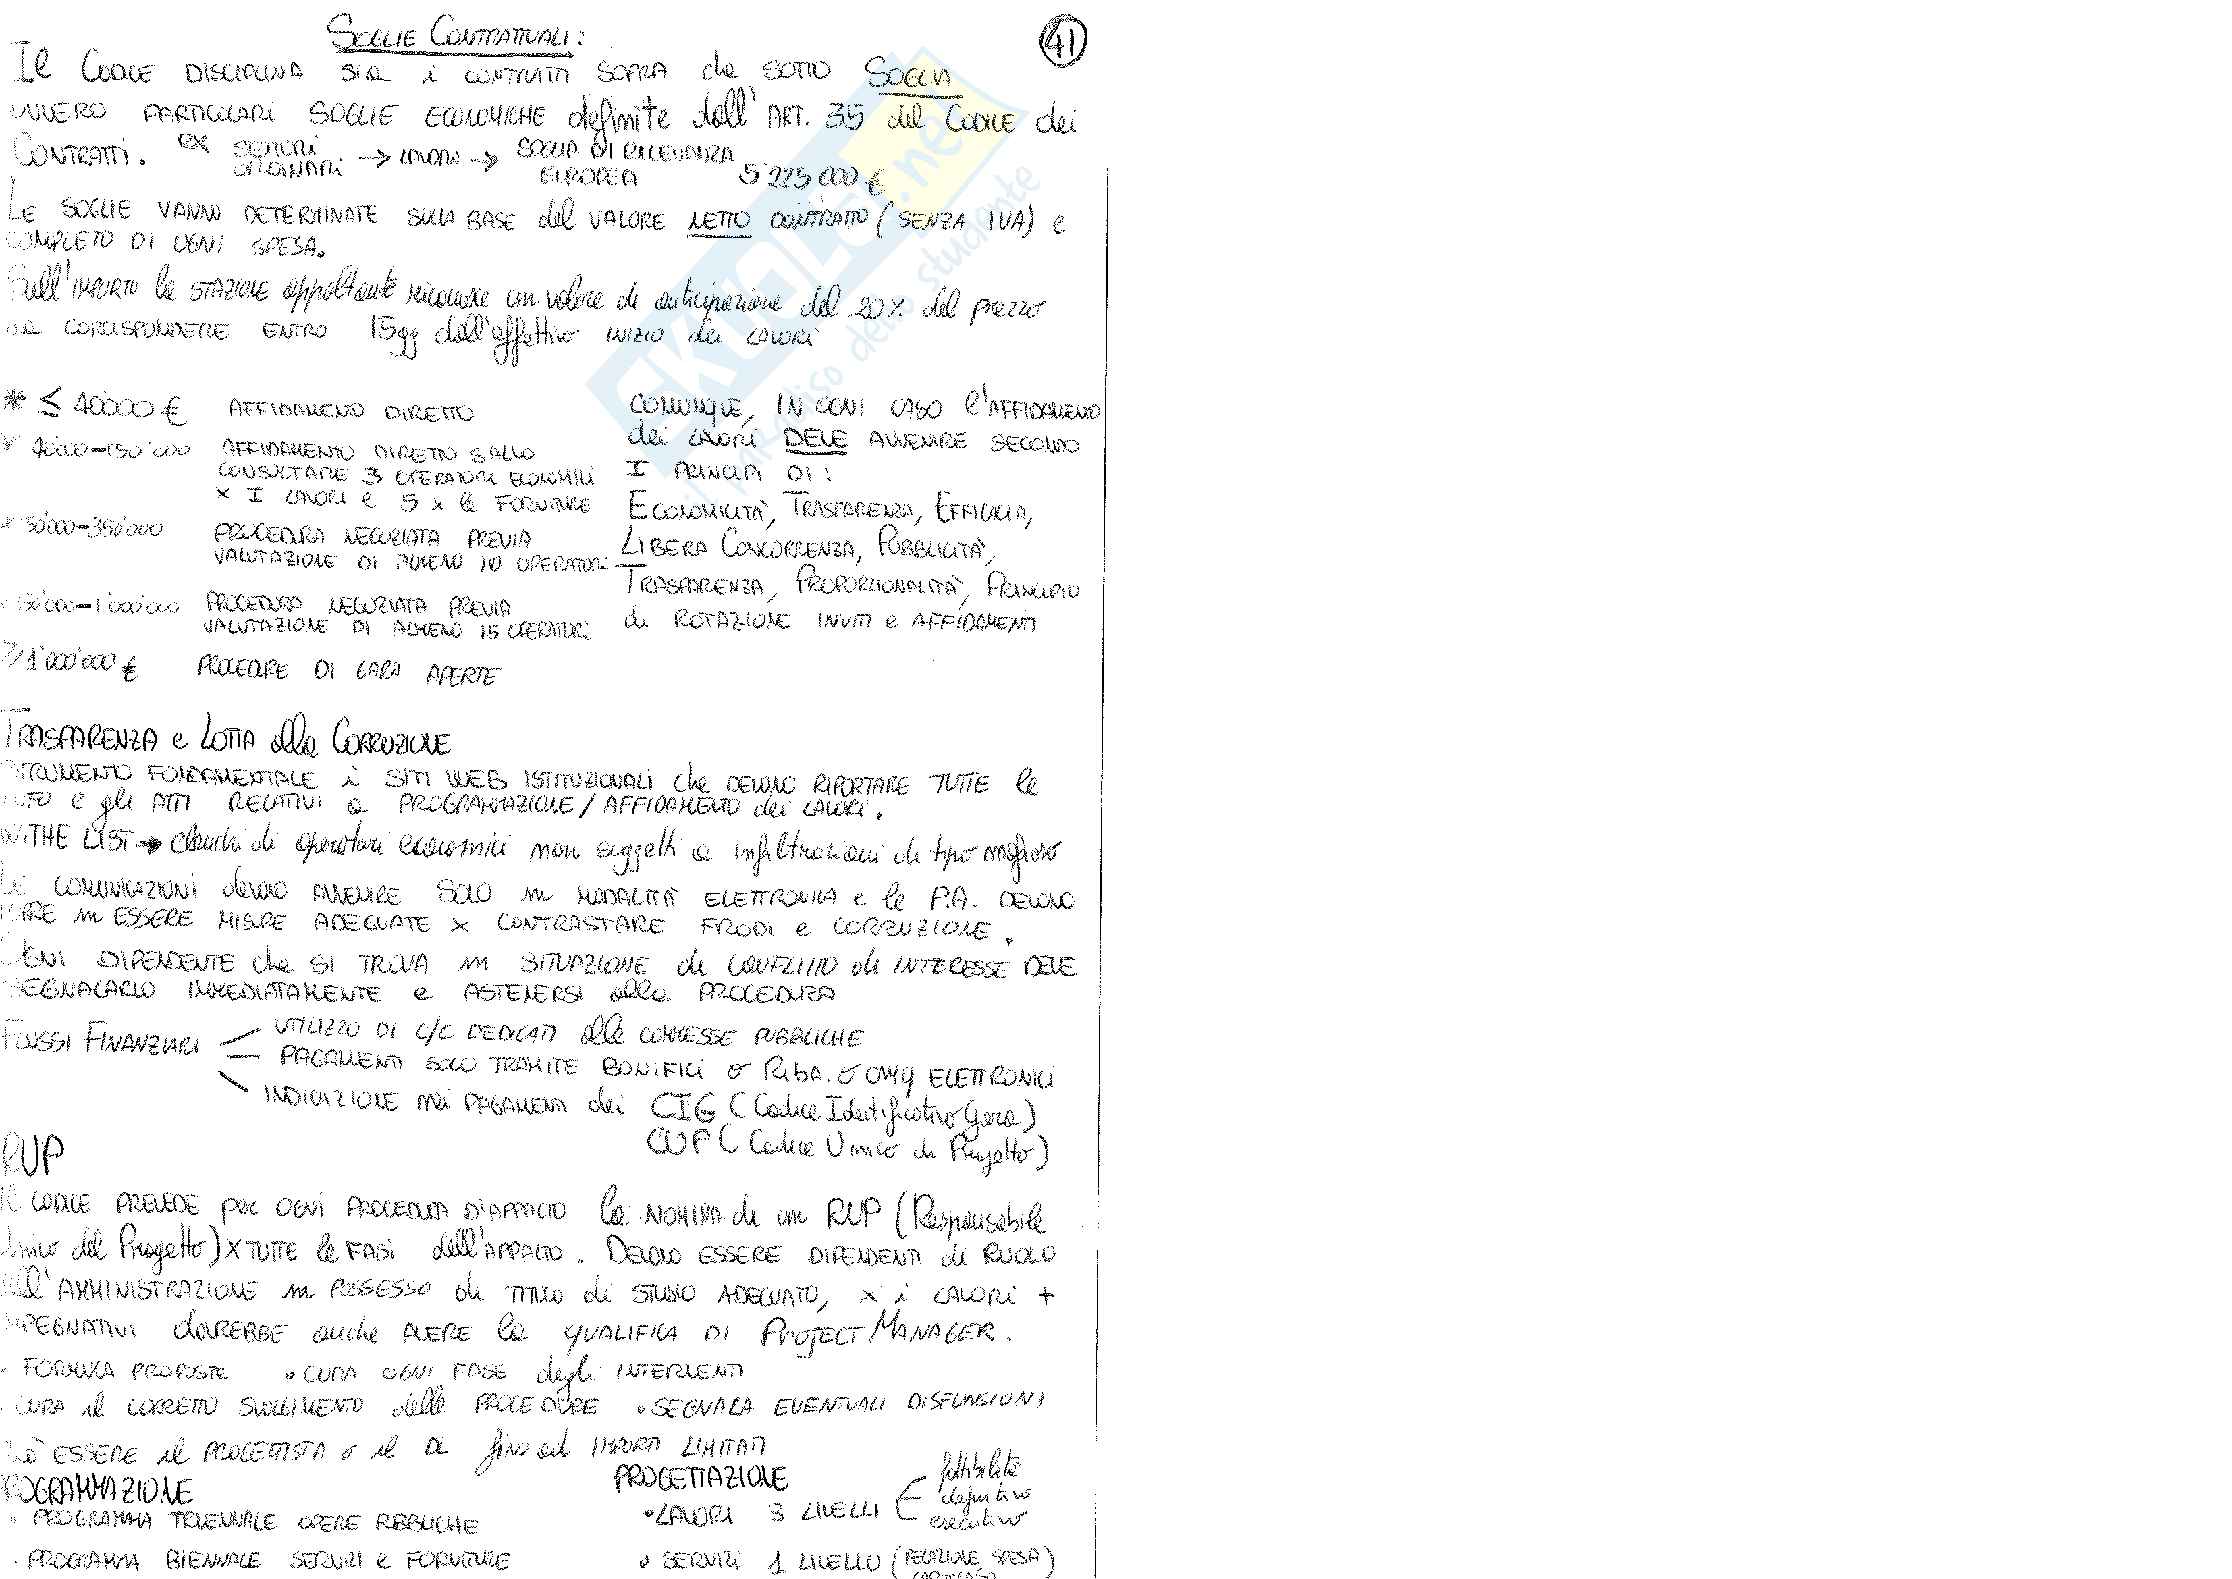 SOGLIE CONTRATTUALI:
41
Il CODICE DISCIPLINA SIA i CONTRATTI SOPRA che SOTTO SOGLIA
OVVERO PARTICOLARI SOGLIE ECONOMICHE definite dall'ART. 35 del CODICE dei
CONTRATTI. ex SETTORI ORDINARI → LAVORI → SOGLIA DI RILEVANZA EUROPEA 5'225'000 €
LE SOGLIE VANNO DETERMINATE SULLA BASE del VALORE NETTO CONTRATTO (SENZA IVA) e
COMPLETO DI OGNI SPESA.
Sull'IMPORTO la STAZIONE appaltante riconosce un valore di anticipazione del 20% del prezzo
DA CORRISPONDERE ENTRO 15gg dall'effettivo INIZIO dei LAVORI
* ≤ 40'000 € AFFIDAMENO DIRETTO
* 40'000-150'000 AFFIDAMENTO DIRETTO SALVO
CONSULTARE 3 OPERATORI ECONOMICI
x I LAVORI e 5 x le FORNITURE
50'000-350'000 PROCEDURA NEGOZIATA PREVIA
VALUTAZIONE DI ALMENO 10 OPERATORI
PROCEDURA NEGOZIATA PREVIA
VALUTAZIONE DI ALMENO 15 OPERATORI
1'000'000 € PROCEDURE DI GARA APERTE
COMUNQUE, IN OGNI CASO l'AFFIDAMENO
dei LAVORI DEVE AVVENIRE SECONDO
I PRINCIPI DI:
ECONOMICITÀ, TRASPARENZA, EFFICACIA,
LIBERA CONCORRENZA, PUBBLICITÀ,
TRASPARENZA, PROPORZIONALITÀ, PRINCIPIO
di ROTAZIONE INVITI e AFFIDAMENTI
TRASPARENZA e LOTTA alla CORRUZIONE
STRUMENTO FONDAMENTALE i SITI WEB ISTITUZIONALI che DEVONO RIPORTARE TUTTE le
INFO e gli ATTI RELATIVI a PROGRAMMAZIONE/AFFIDAMENTO dei LAVORI.
WITHE LIST → elenchi di operatori economici non soggetti a infiltrazioni di tipo mafioso
LE COMUNICAZIONI devono AVVENIRE SOLO in MODALITÀ ELETTRONICA e le P.A. DEVONO
PORRE in ESSERE MISURE ADEGUATE x CONTRASTARE FRODI e CORRUZIONE.
OGNI DIPENDENTE che SI TROVA in SITUAZIONE di CONFLITTO di INTERESSE DEVE
SEGNALARLO IMMEDIATAMENTE e ASTENERSI alla PROCEDURA
FLUSSI FINANZIARI
UTILIZZO DI C/C DEDICATI alle COMMESSE PUBBLICHE
PAGAMENTI SOLO TRAMITE BONIFICI o RiBA. o ELETTRONICI
INDICAZIONE nei PAGAMENTI dei CIG (Codice Identificativo Gara)
CUP (Codice Unico di Progetto)
RUP
Il CODICE PREVEDE per OGNI PROCEDURA D'APPALTO la NOMINA di un RUP (Responsabile
Unico del Progetto) x TUTTE le FASI dell'APPALTO. DEVONO ESSERE DIPENDENTI di RUOLO
dell'AMMINISTRAZIONE in POSSESSO di TITOLO di STUDIO ADEGUATO, x i LAVORI +
IMPEGNATIVI dovREBBE anche AVERE la QUALIFICA DI PROJECT MANAGER.
• FORMULA PROPOSTE • CURA OGNI FASE degli INTERVENTI
• CURA il CORRETTO SVOLGIMENTO delle PROCEDURE • SEGNALA EVENTUALI DISFUNZIONI
PUÒ ESSERE il PROGETTISTA o il DL fino ad IMPORTI LIMITATI
PROGRAMMAZIONE
• PROGRAMMA TRIENNALE OPERE PUBBLICHE
• PROGRAMMA BIENNALE SERVIZI e FORNITURE
PROGETTAZIONE
• LAVORI 3 LIVELLI
fattibilità
definitivo
esecutivo
• SERVIZI 1 LIVELLO (RELAZIONE SPESA)
SKUOLA.net
il paradiso dello studente